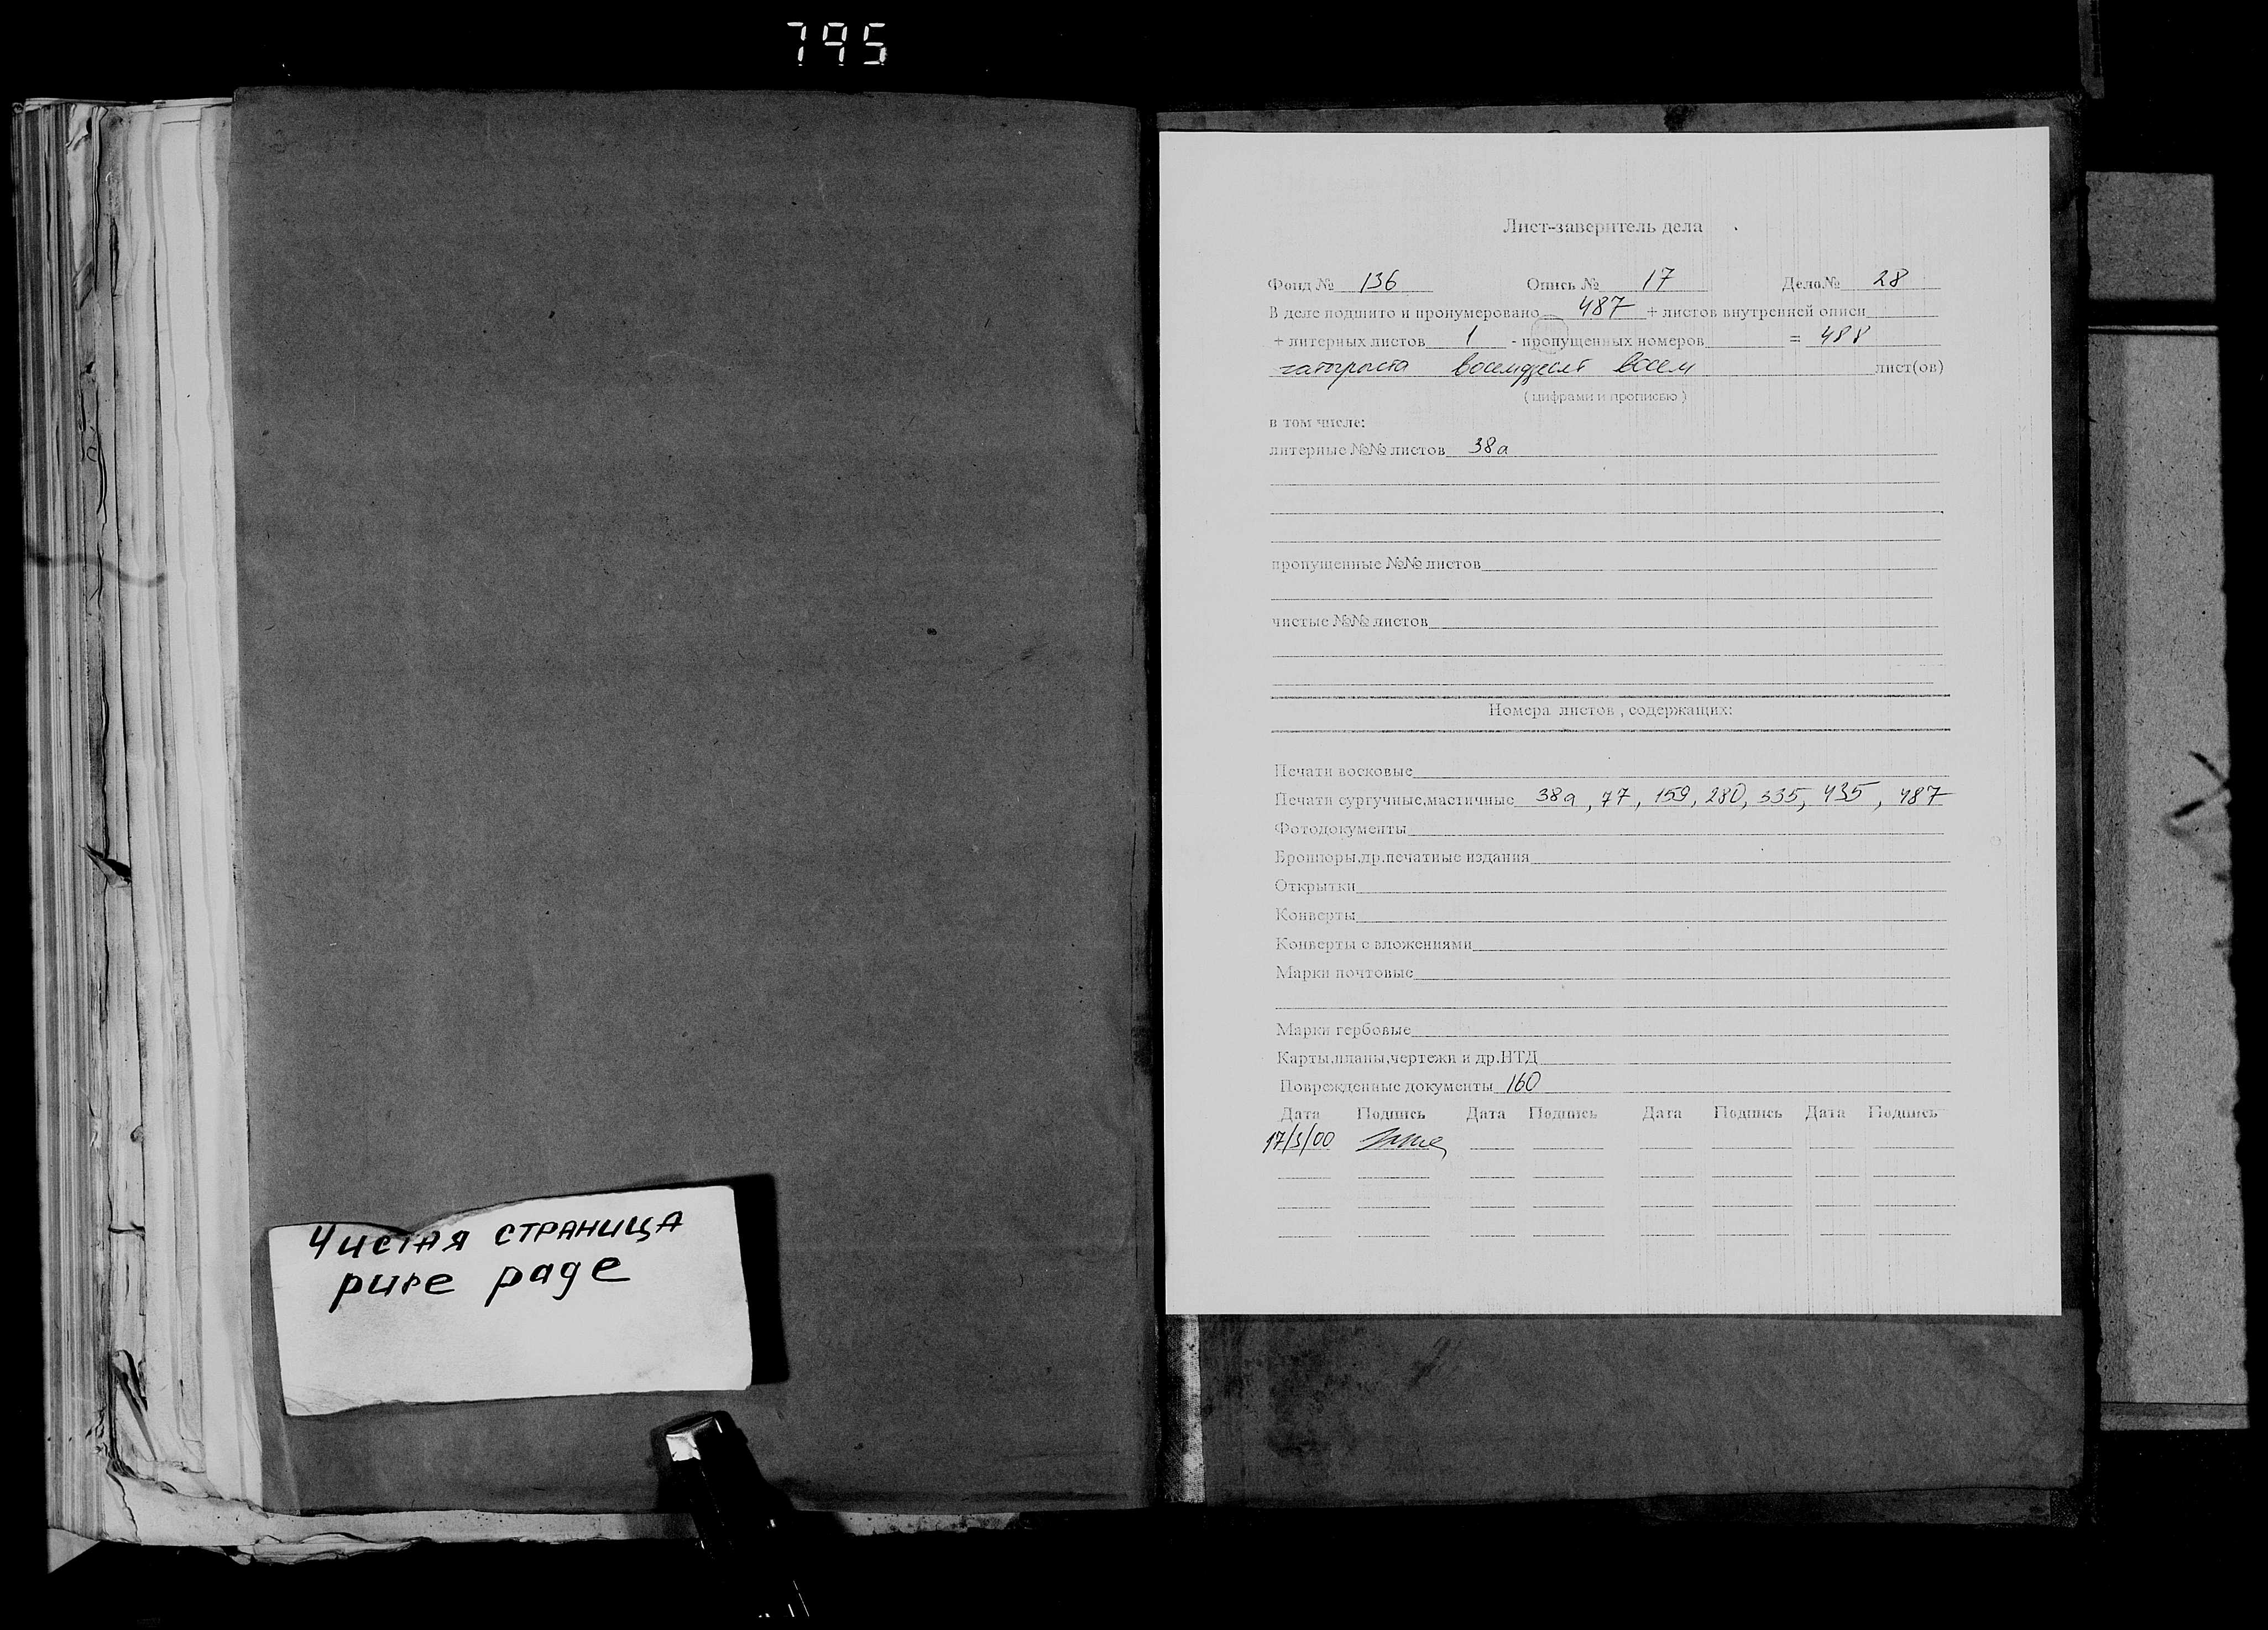 795
Чистая страница
pure page
Лист-заверитель дела
Фонд № 136 Опись № 17 Дело№ 28
В деле подшито и пронумеровано 487 + листов внутренней описи
+ литерных листов 1 - пропущенных номеров = 488
четыреста восемдесят восем лист(ов)
( цифрами и прописью )
в том числе:
литерные №№ листов 38а
пропущенные №№ листов
чистые №№ листов
Номера листов , содержащих:
Печати восковые
Печати сургучные,мастичные 38а, 77, 159, 280, 335, 435, 487
Фотодокументы
Брошюры,др.печатные издания
Открытки
Конверты
Конверты с вложениями
Марки почтовые
Марки гербовые
Карты,планы,чертежи и др.НТД
Поврежденные документы 160
Дата Подпись Дата Подпись Дата Подпись Дата Подпись
17/3/00